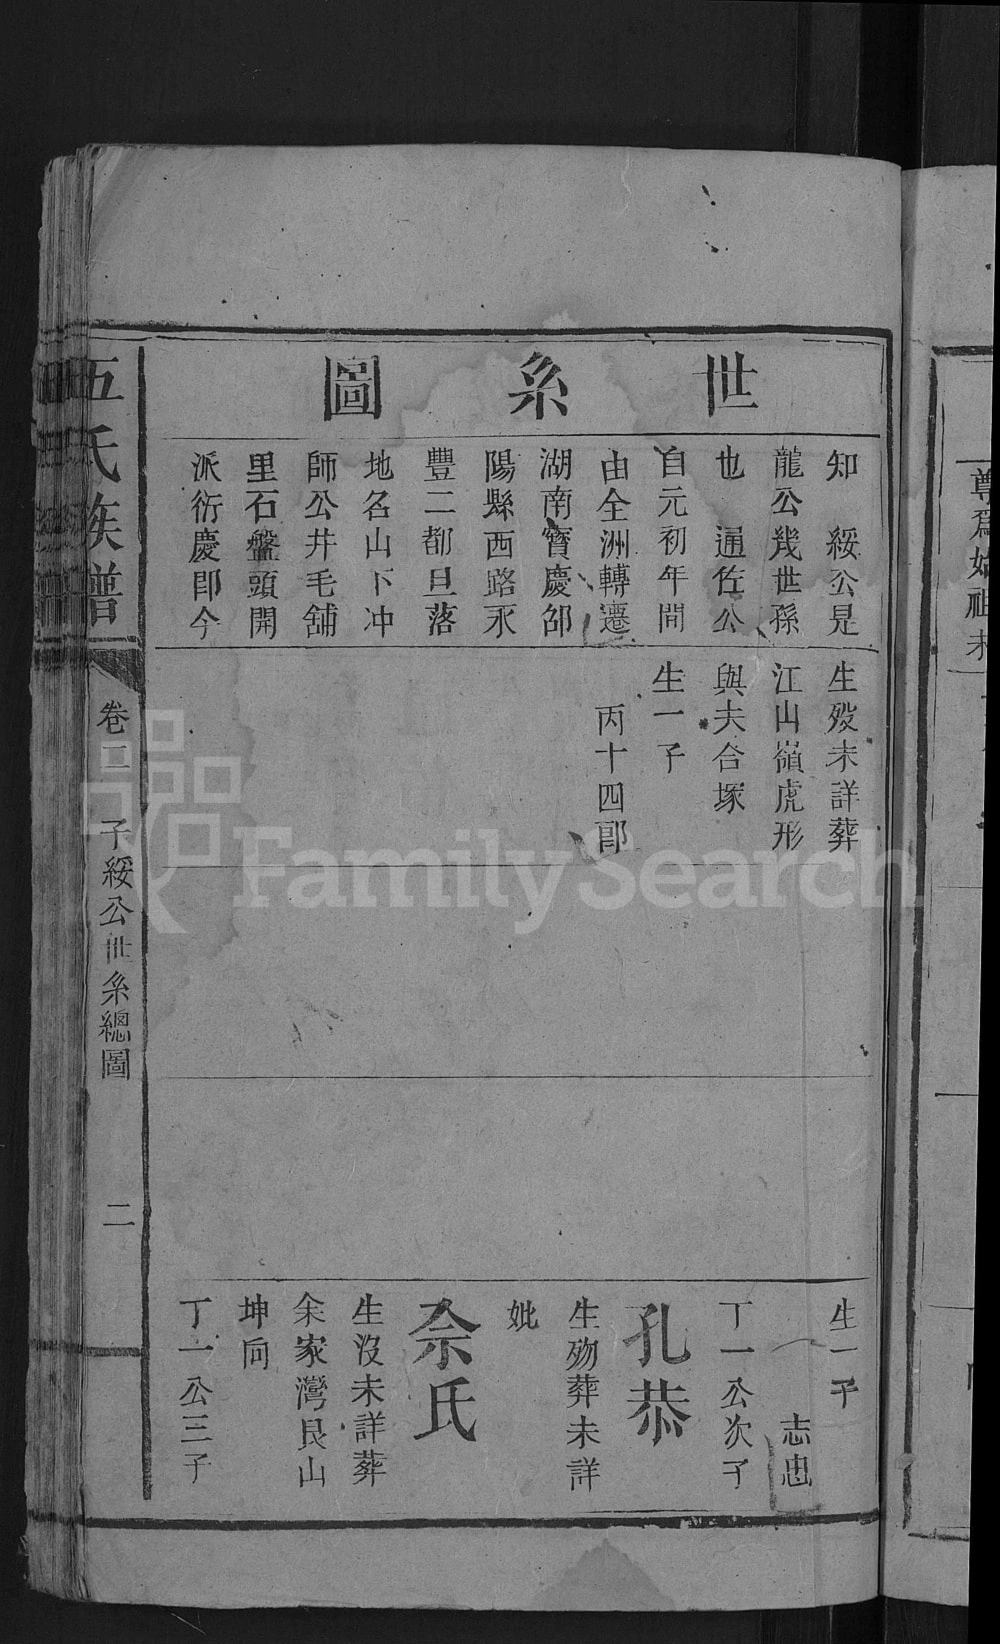 世系圖
知　綏公是
龍公幾世孫
也　通佐公
自元初年間
由全洲轉遷
湖南寳慶邵
陽縣西路永
豐二都旦落
地名山下冲
師公井毛舖
里石盤頭開
派衍慶即今
生殁未詳葬
江山嶺虎形
與夫合塚
生一子
丙十四郎
生一子
志忠
丁一公次子
孔恭
生殁葬未詳
妣
佘氏
生沒未詳葬
余家灣艮山
坤向
丁一公三子
五氏族譜
卷二　子綏公世系總圖　二
尊爲始祖未
FamilySearch